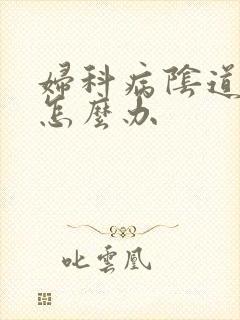 婦科病陰道
怎麼办
叱雲凰